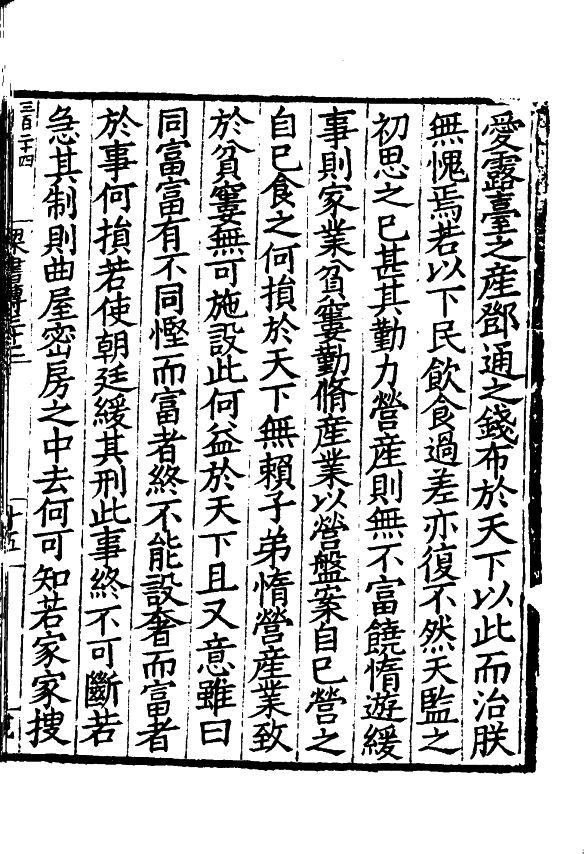 愛露臺之産鄧通之錢布於天下以此而治朕
無愧焉若以下民飲食過差亦復不然天監之
初思之已甚其勤力營産則無不富饒惰遊緩
事則家業貧窶勤脩産業以營盤案自已營之
自已食之何損於天下無賴子弟惰營産業致
於貧窶無可施設此何益於天下且又意雖曰
同富富有不同慳而富者終不能設奢而富者
於事何損若使朝廷緩其刑此事終不可斷若
急其制則曲屋密房之中去何可知若家家搜
三百二十四
梁書傳三十二
十五